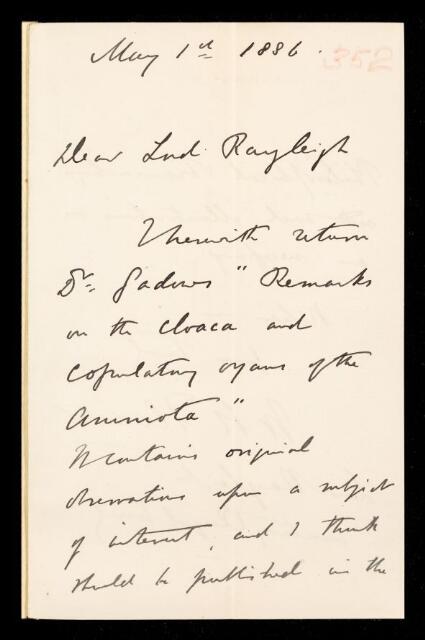 May 1st 1886.
352
Dear Lord Rayleigh
I herewith return
Dr. Gadows "Remarks
on the Cloaca and
Copulatory organs of the
Amniota"
It contains original
observations upon a subject
of interest, and I think
should be published in the